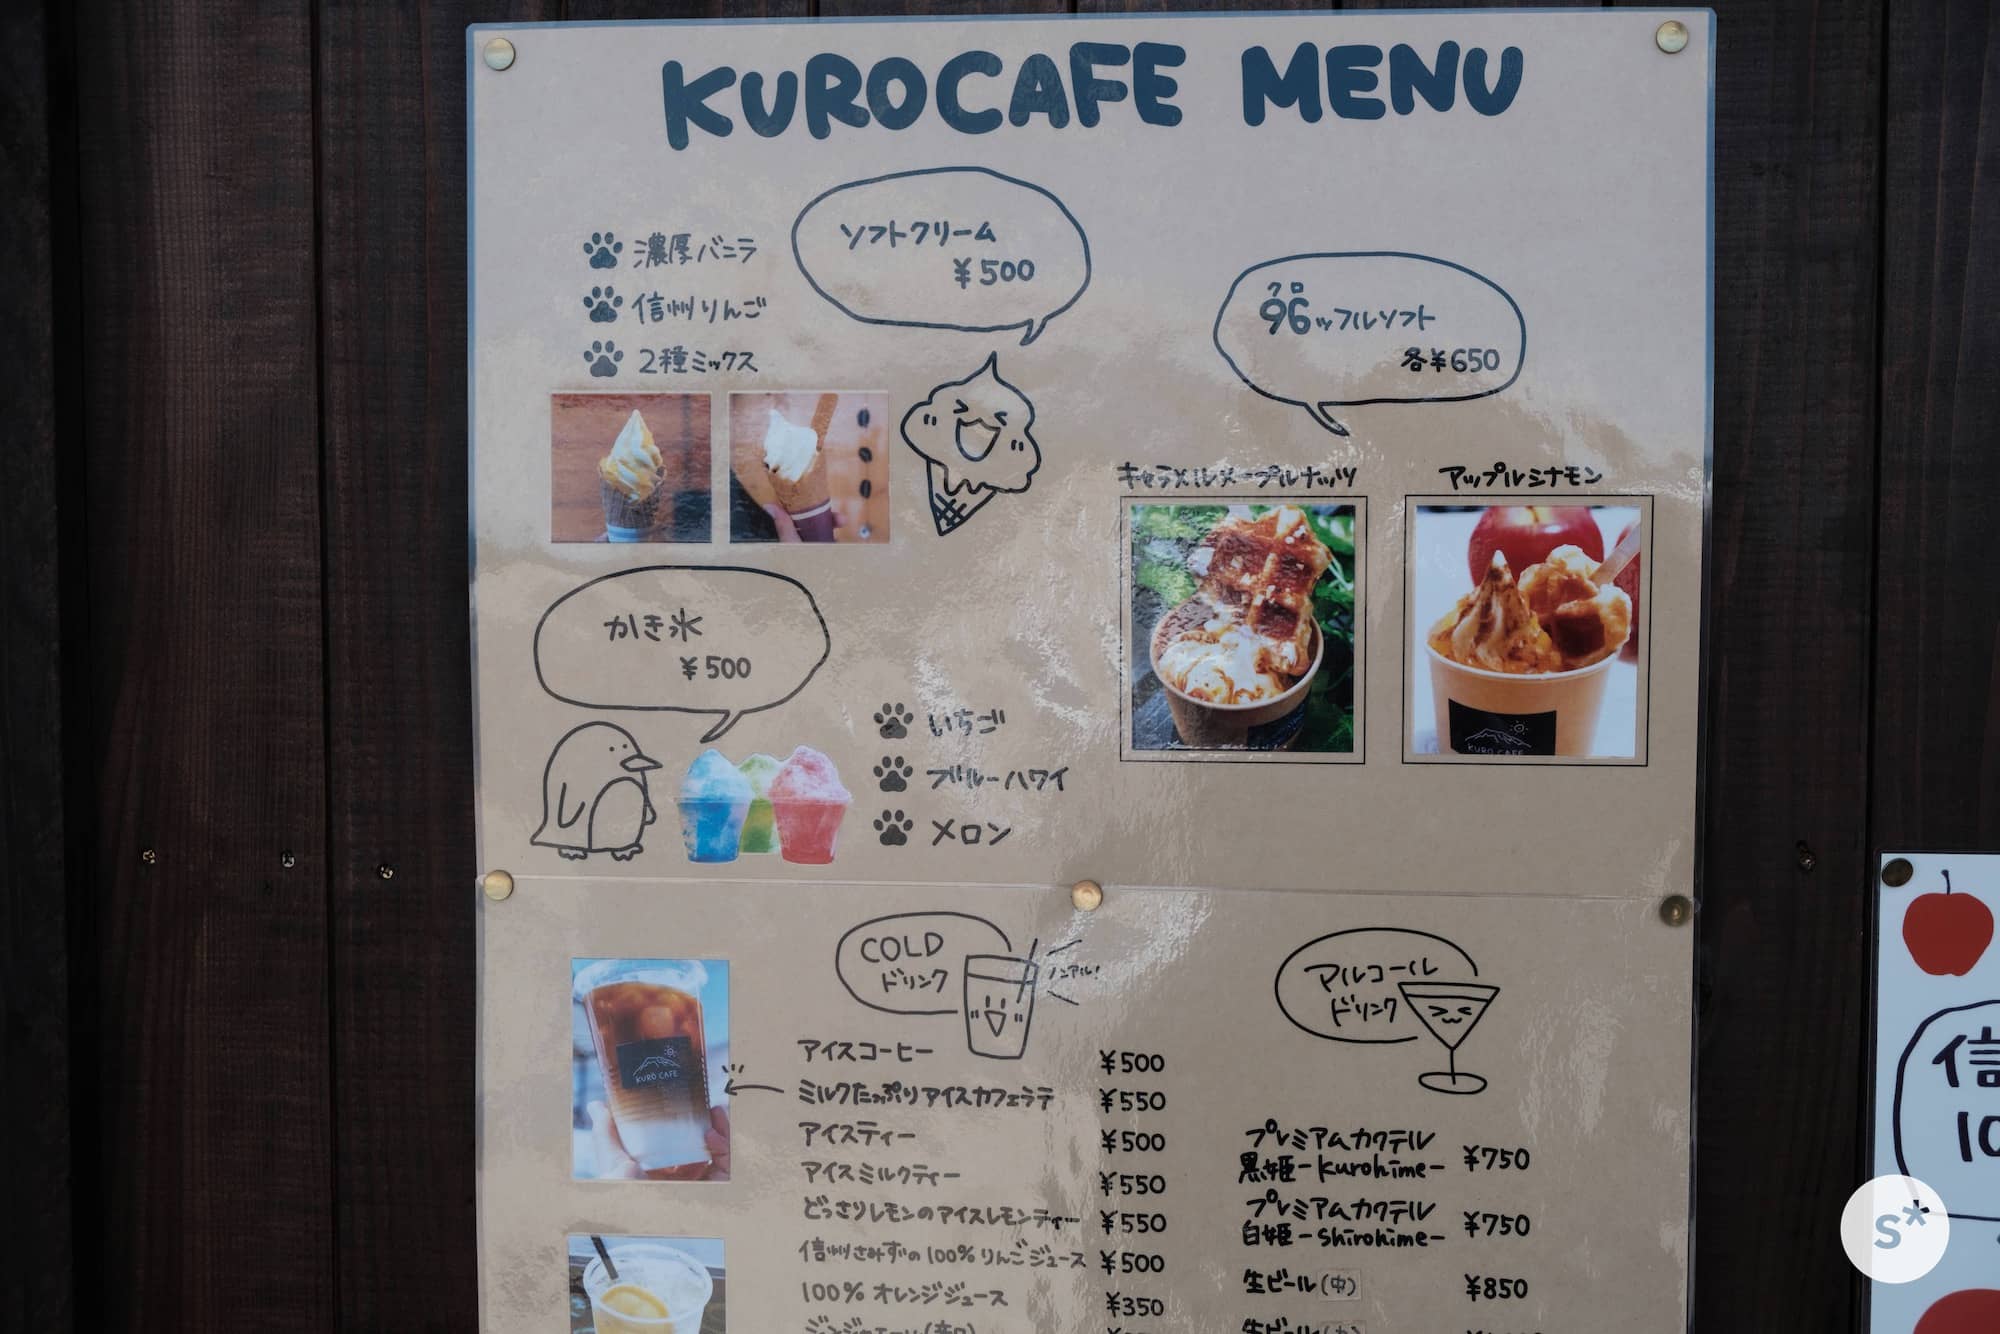 KUROCAFE MENU
ソフトクリーム
¥500
濃厚バニラ
信州りんご
2種ミックス
クロ
96ッフルソフト
各¥650
キャラメルメープルナッツ
アップルシナモン
KURO CAFE
かき氷
¥500
いちご
ブルーハワイ
メロン
COLD
ドリンク
ノンアル!
KURO CAFE
アイスコーヒー ¥500
ミルクたっぷりアイスカフェラテ ¥550
アイスティー ¥500
アイスミルクティー ¥550
どっさりレモンのアイスレモンティー ¥550
信州さみずの100%りんごジュース ¥500
100% オレンジジュース ¥350
アルコール
ドリンク
プレミアムカクテル
黒姫-kurohime- ¥750
プレミアムカクテル
白姫-shirohime- ¥750
生ビール(中) ¥850
信
10
s*